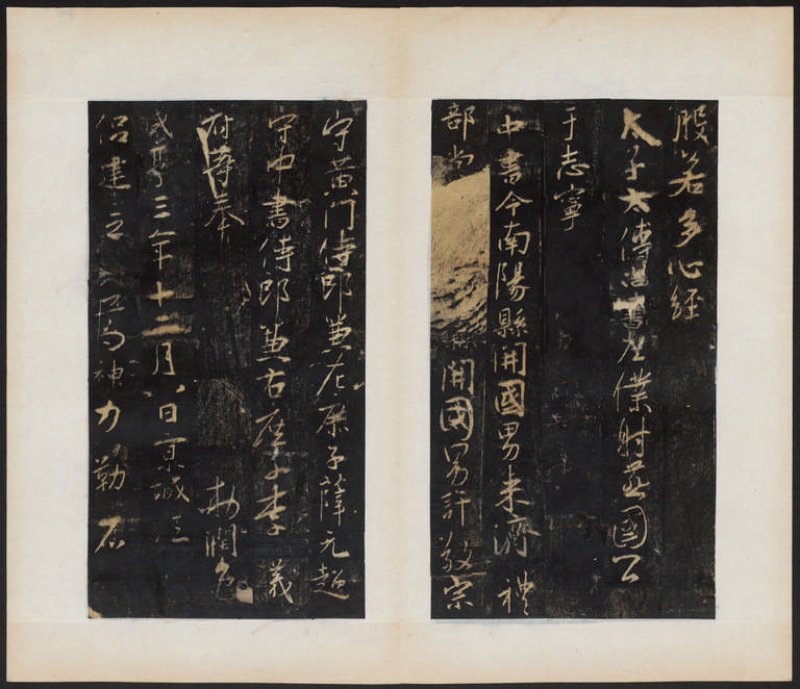 般若多心經
太子太傅尚書左僕射燕國公
于志寧
中書令南陽縣開國男来濟 禮
部尚 開國男許敬宗
守黃門侍郎兼左庶子薛元超
守中書侍郎兼右庶子李義
府等奉 勑潤色
咸亨三年十二月八日京城法
侶建立 神力勒石